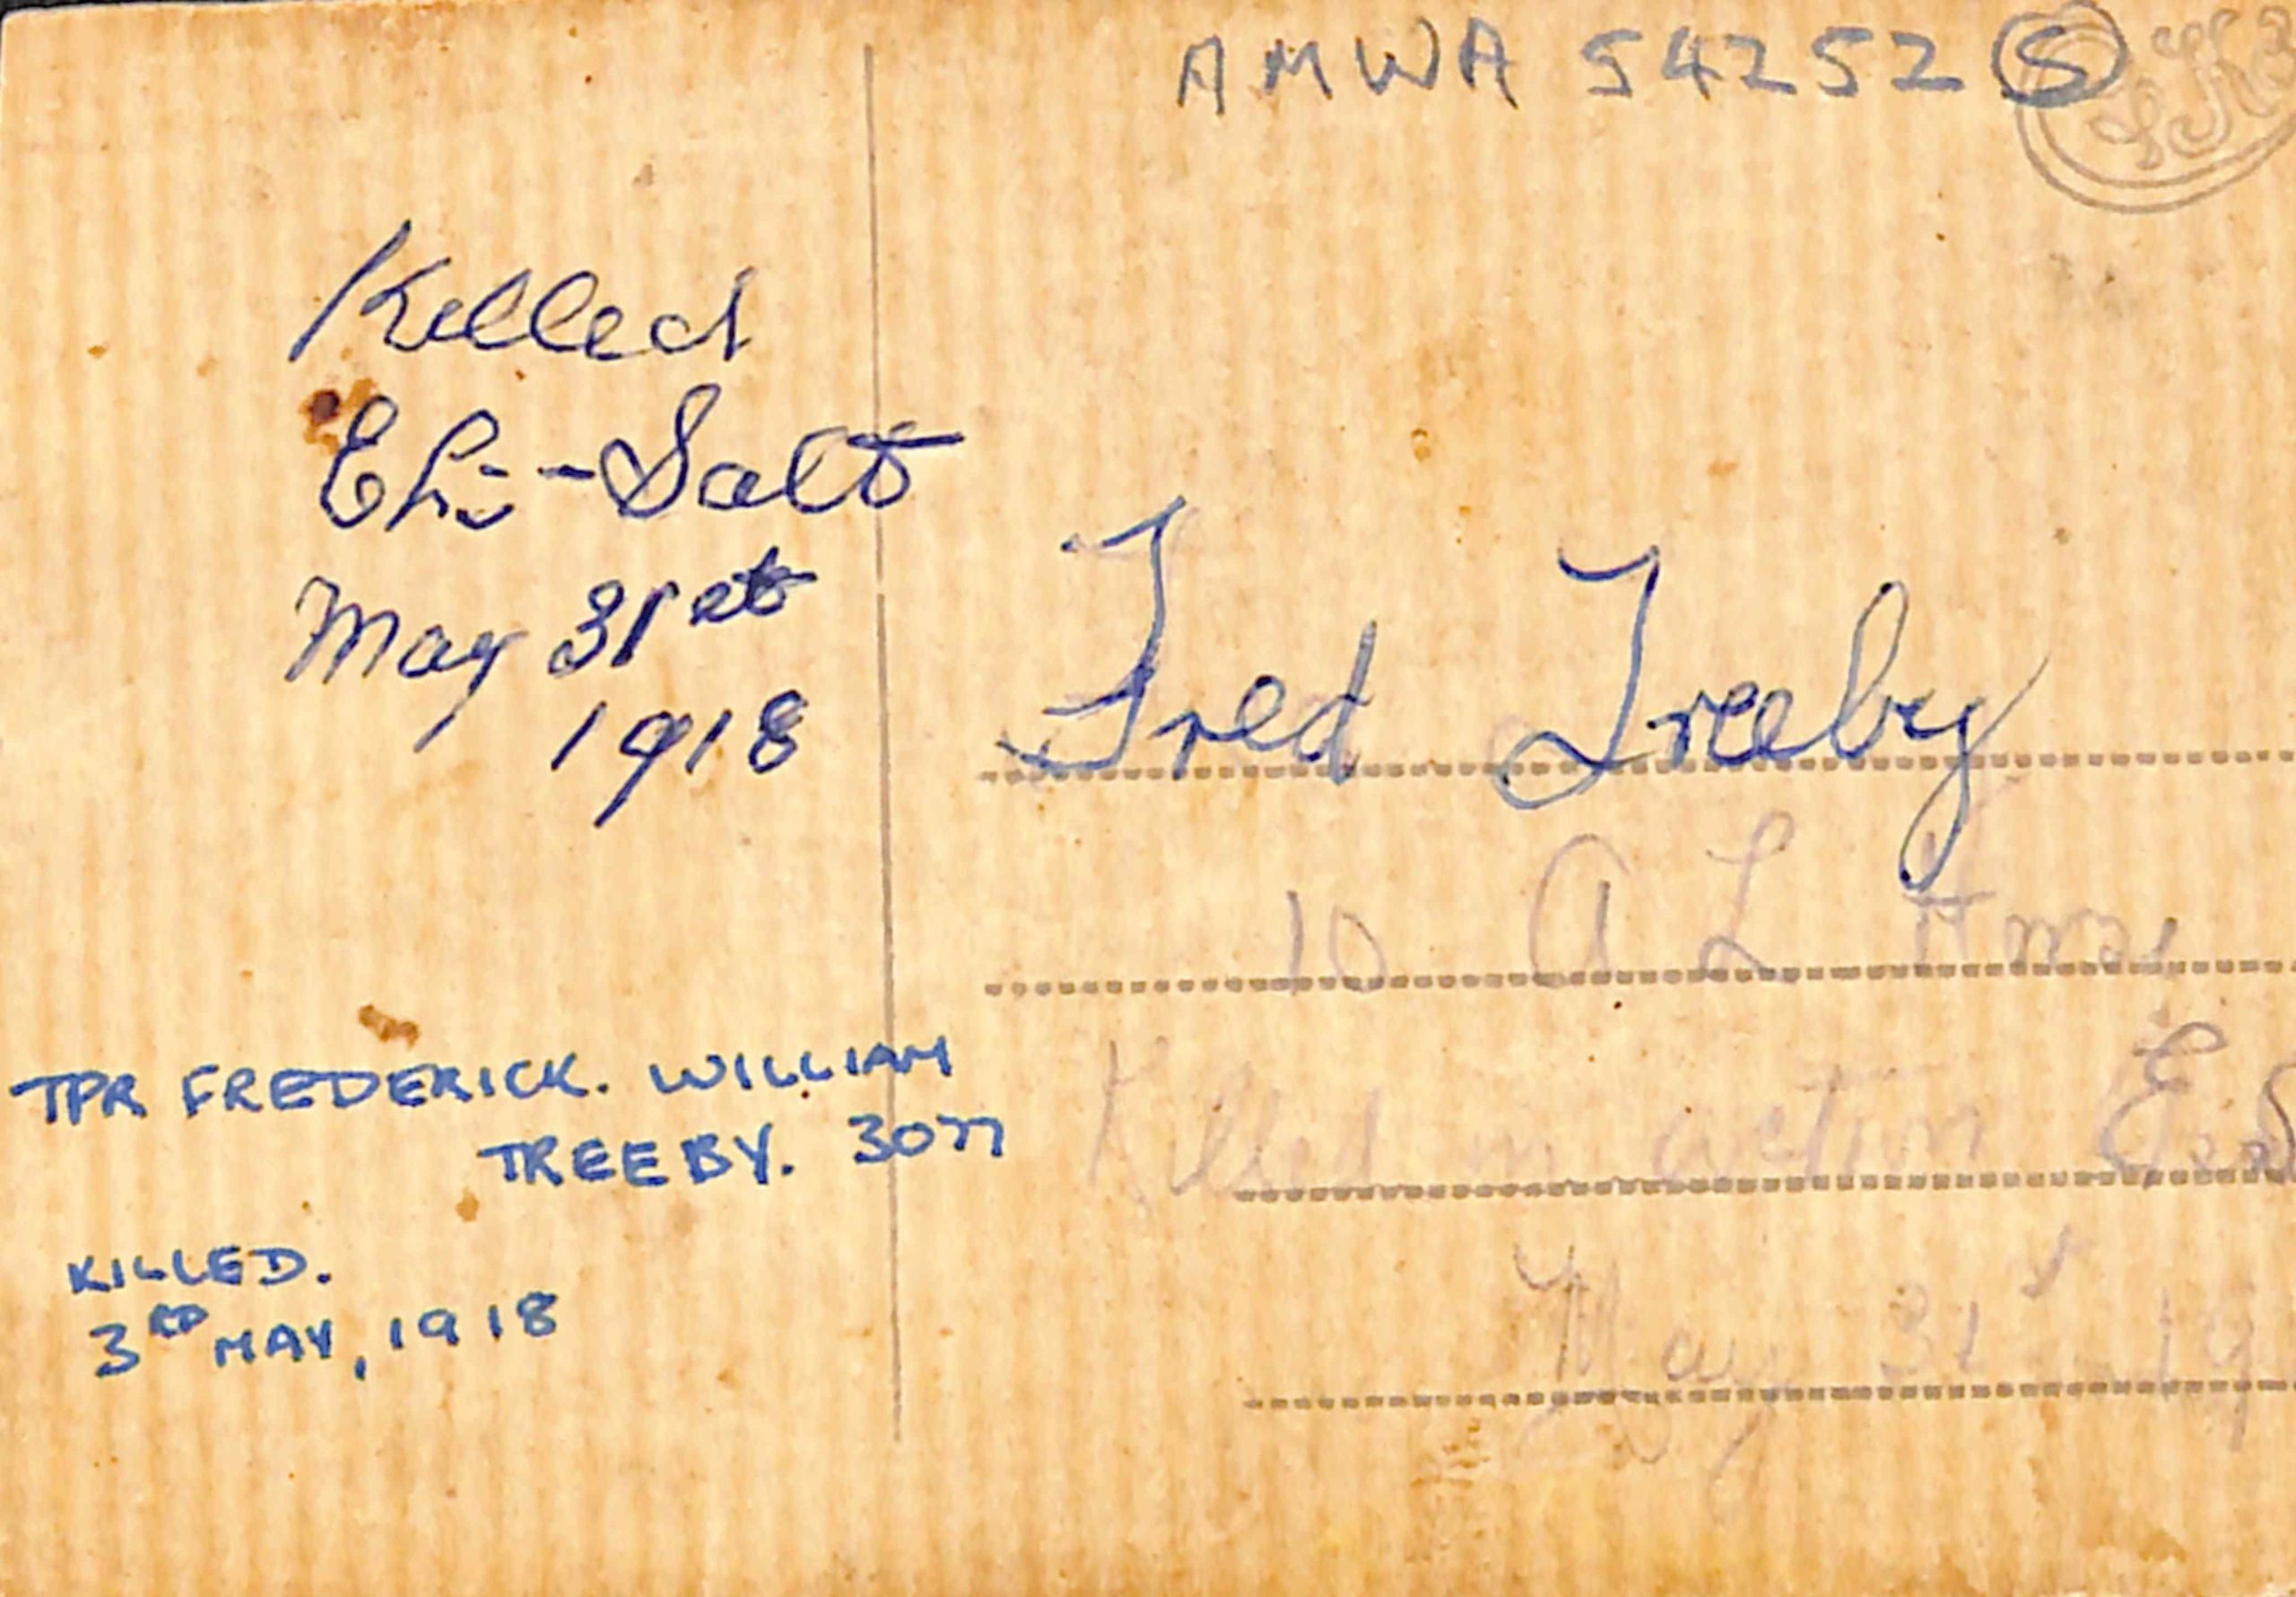 AMWA 54252 S
Killed
Es-Salt
May 31st
1918
Fred Treeby
10 A L H
Killed in action Es S
May 31st 19
TPR FREDERICK. WILLIAM
TREEBY. 3077
KILLED.
3RD MAY, 1918